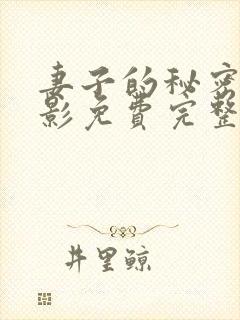 妻子的秘密
影免费完整
井里鲸